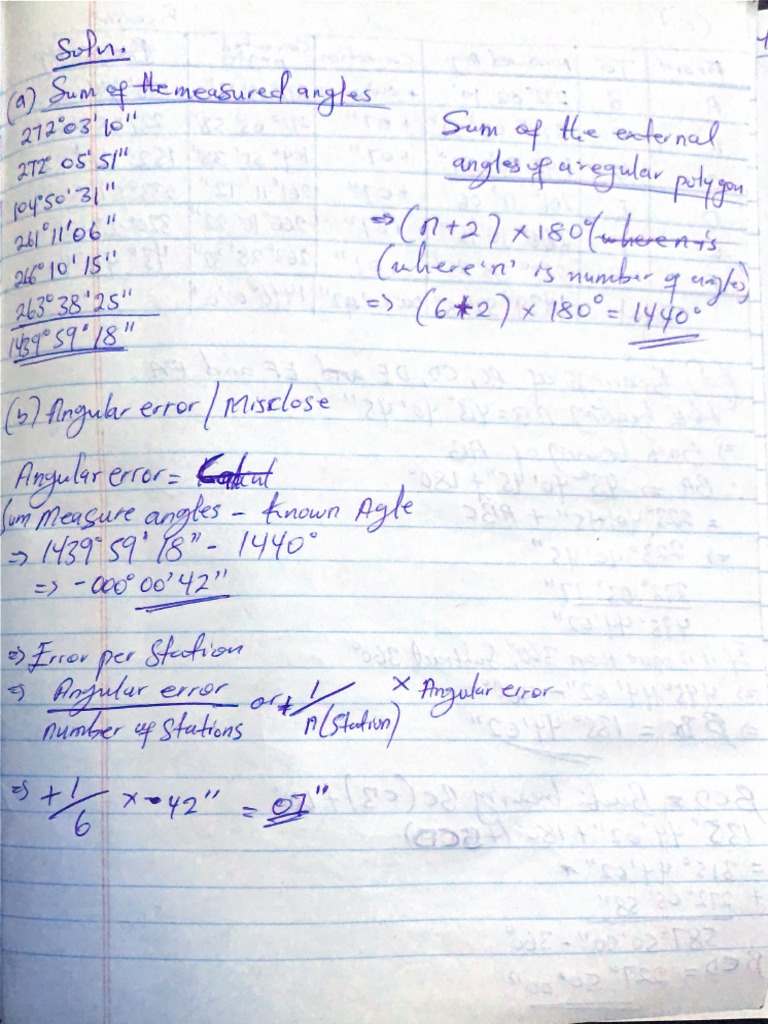 Soln.
(a) Sum of the measured angles
272°03'10"
272°05'51"
104°50'31"
261°11'06"
266°10'15"
263°38'25"
1439°59'18"
Sum of the external
angles of a regular polygon
=> (n+2) × 180° (where n is
(where 'n' is number of angles)
=> (6+2) × 180° = 1440°
(b) Angular error / Misclose
Angular error =
Sum Measure angles - Known Agle
=> 1439°59'18" - 1440°
=> -000°00'42"
=> Error per Station
=> Angular error / number of Stations or + 1 / n(Station) × Angular error
=> +1/6 × -42" = 07"